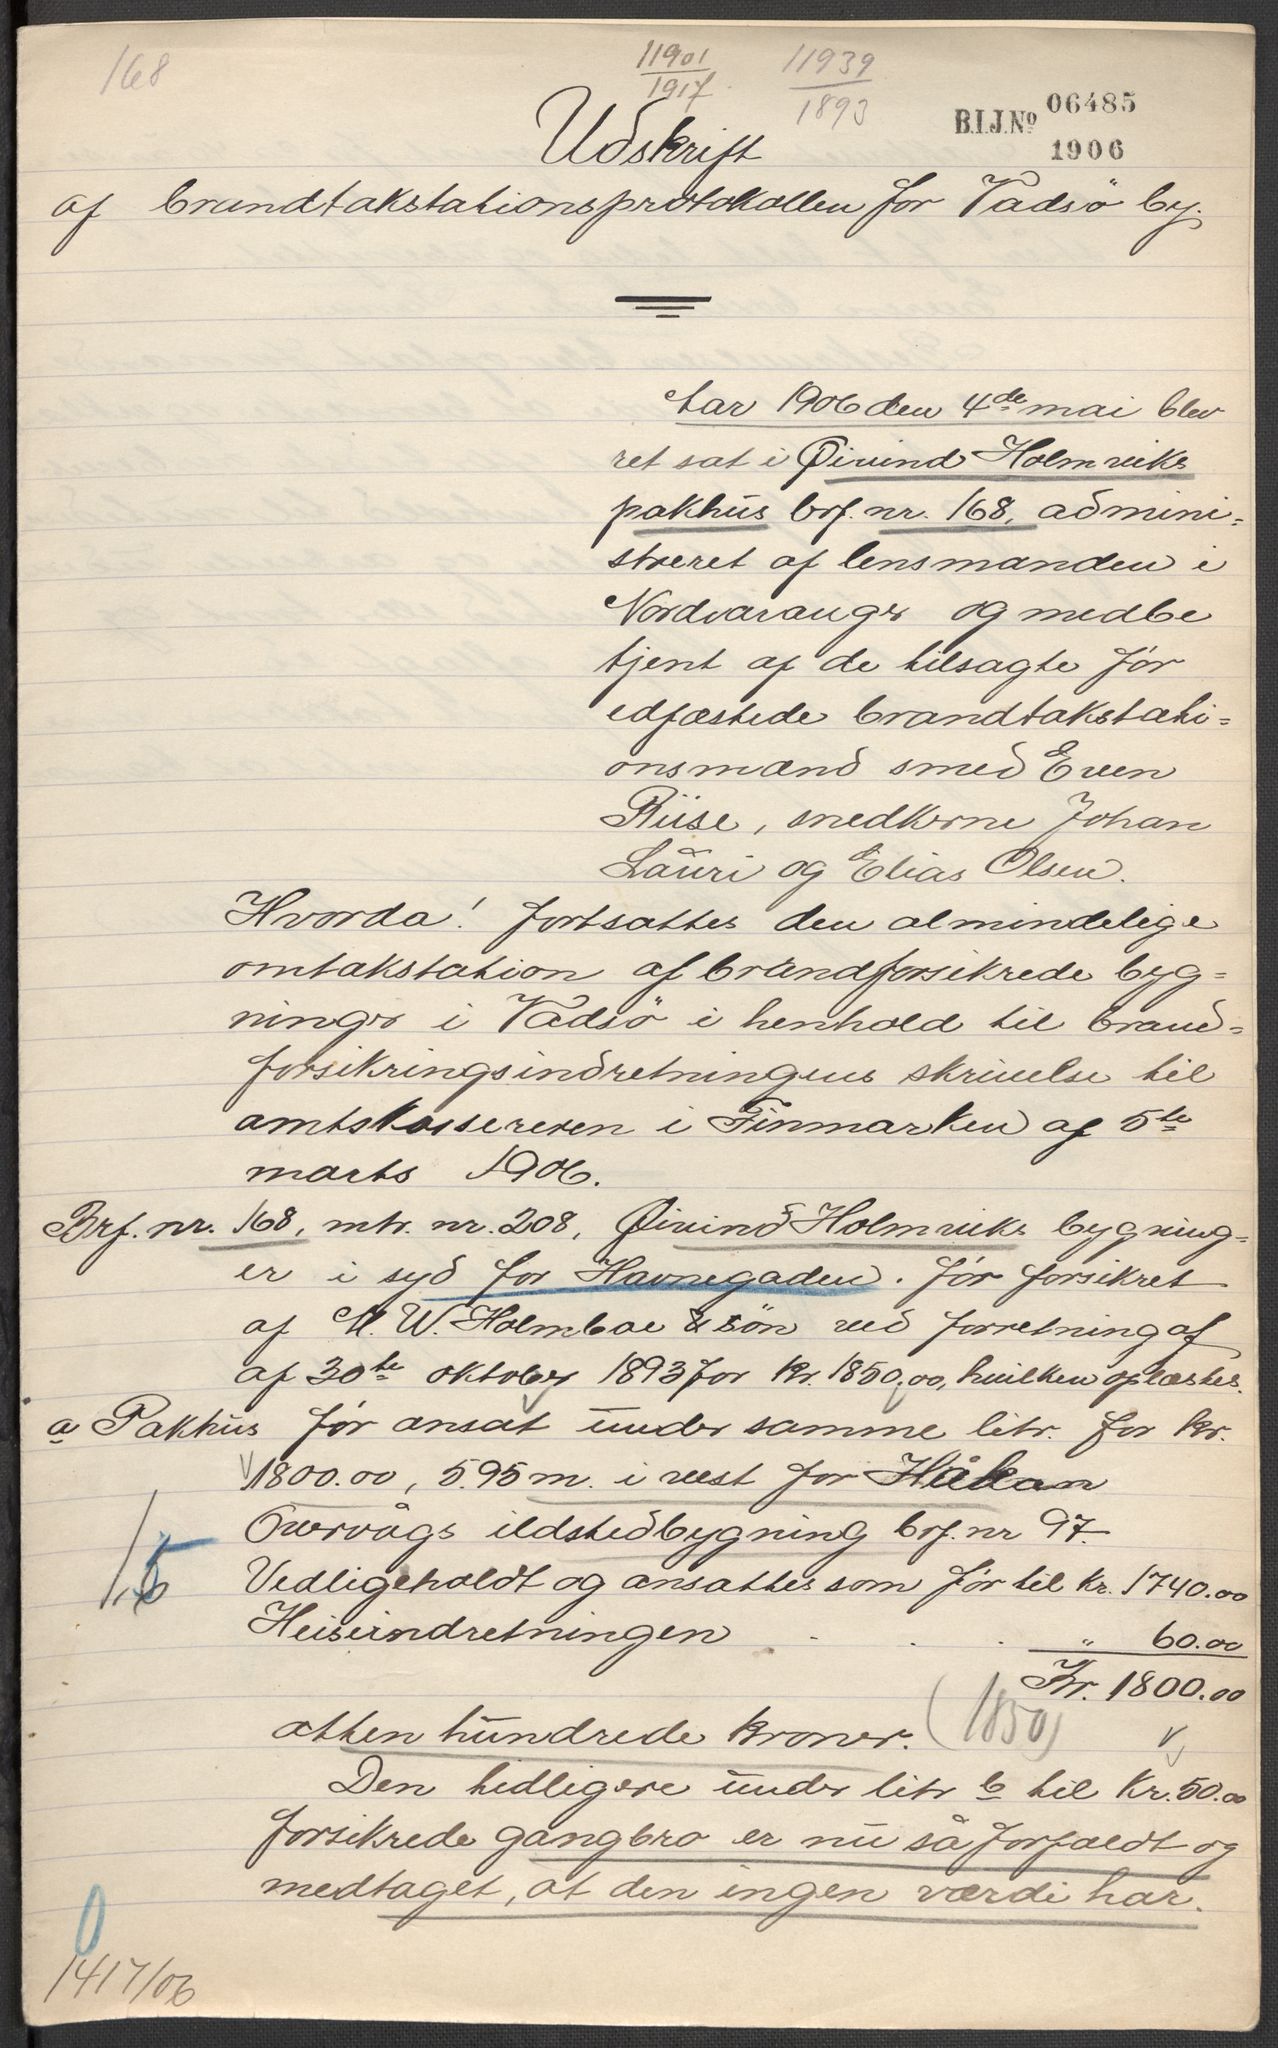 168
11901
1917
11939
1893
B.I.J.No 06485
1906
Udskrift
af brandtakstationsprotokollen for Vadsö by.
Aar 1906 den 4de mai blev
ret sat i Øivind Holmviks
pakhus brf. nr. 168, admini=
streret af lensmanden i
Nordvaranger og medbe
tjent af de tilsagte før
edfæstede brandtakstati=
onsmænd smed Even
Riise, snedkerne Johan
Lauri og Elias Olsen.
Hvorda! fortsattes den almindelige
omtakstation af brandforsikrede byg=
ninger i Vadsö i henhold til brand=
forsikringsindretningens skrivelse til
amtskassereren i Finmarken af 5te
marts 1906.
Brf. nr. 168, mtr. nr. 208, Øivind Holmviks bygning=
er i syd for Havnegaden. Før forsikret
af M. W. Holmboe & sön ved forretning af
af 30te oktober 1893 for kr. 1850,00, hvilken oplæstes.
a Pakhus før ansat under samme litr. for kr.
1800.00, 5.95 m. i vest for Håkan
Overvågs ildstedbygning brf. nr 97.
Vedligeholdt og ansattes som før til kr. 1740.00
Heiseindretningen . . . " 60.00
Kr. 1800.00
atten hundrede kroner. (1850)
Den tidligere under litr b til Kr. 50.00
forsikrede gangbro er nu så forfaldt og
medtaget, at den ingen værdi har.
0
1417/06